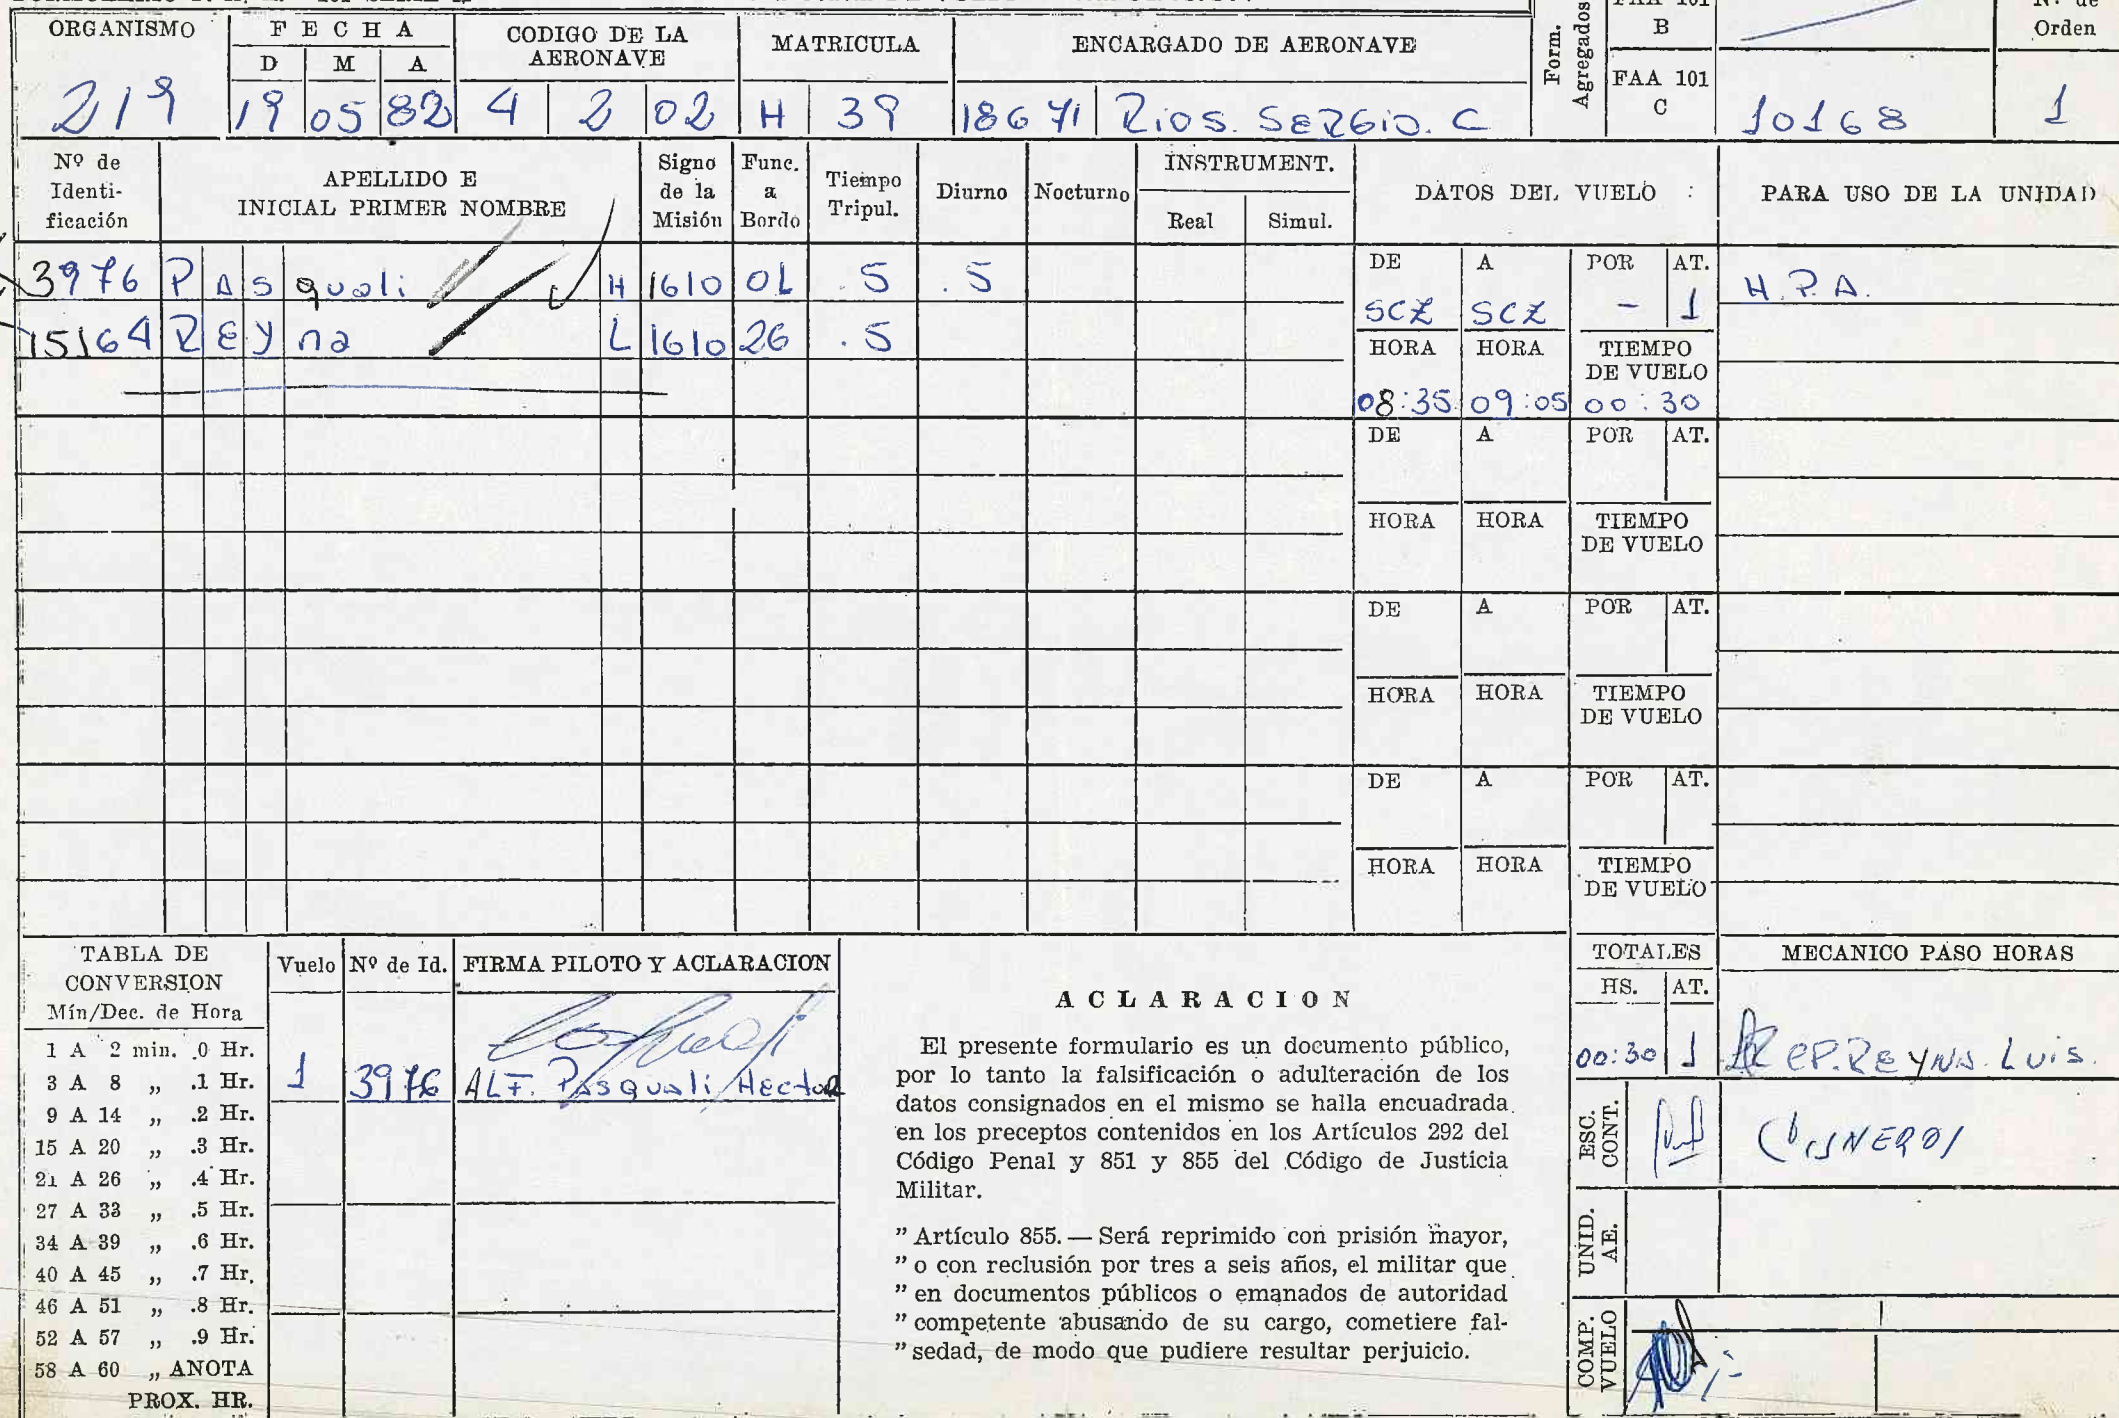 ORGANISMO F E C H A CODIGO DE LA AERONAVE MATRICULA ENCARGADO DE AERONAVE Form. Agregados FAA 101 B Nº de Orden
D M A FAA 101 C
219 19 05 82 4 2 02 H 39 18671 Rios. SERGio. C 10168 1
Nº de Identi-ficación APELLIDO E INICIAL PRIMER NOMBRE Signo de la Misión Func. a Bordo Tiempo Tripul. Diurno Nocturno INSTRUMENT. Real Simul. DATOS DEL VUELO : PARA USO DE LA UNIDAD
3976 PASquali H 1610 01 .5 .5
15164 REyna L 1610 26 .5
DE A POR AT.
SCZ SCZ - 1 H.P.A.
HORA HORA TIEMPO DE VUELO
08:35 09:05 00:30
DE A POR AT.
HORA HORA TIEMPO DE VUELO
DE A POR AT.
HORA HORA TIEMPO DE VUELO
DE A POR AT.
HORA HORA TIEMPO DE VUELO
TABLA DE CONVERSION
Mín/Dec. de Hora
1 A 2 min. .0 Hr.
3 A 8 „ .1 Hr.
9 A 14 „ .2 Hr.
15 A 20 „ .3 Hr.
21 A 26 „ .4 Hr.
27 A 33 „ .5 Hr.
34 A 39 „ .6 Hr.
40 A 45 „ .7 Hr.
46 A 51 „ .8 Hr.
52 A 57 „ .9 Hr.
58 A 60 „ ANOTA
PROX. HR.
Vuelo Nº de Id. FIRMA PILOTO Y ACLARACION
1 3976 ALF. Pasquali Hector
A C L A R A C I O N
El presente formulario es un documento público,
por lo tanto la falsificación o adulteración de los
datos consignados en el mismo se halla encuadrada
en los preceptos contenidos en los Artículos 292 del
Código Penal y 851 y 855 del Código de Justicia
Militar.
” Artículo 855. — Será reprimido con prisión mayor,
” o con reclusión por tres a seis años, el militar que
” en documentos públicos o emanados de autoridad
” competente abusando de su cargo, cometiere fal-
” sedad, de modo que pudiere resultar perjuicio.
TOTALES MECANICO PASO HORAS
HS. AT.
00:30 1 CP. REYNA. Luis.
ESC. CONT. CISNEROS
UNID. AE.
COMP. VUELO